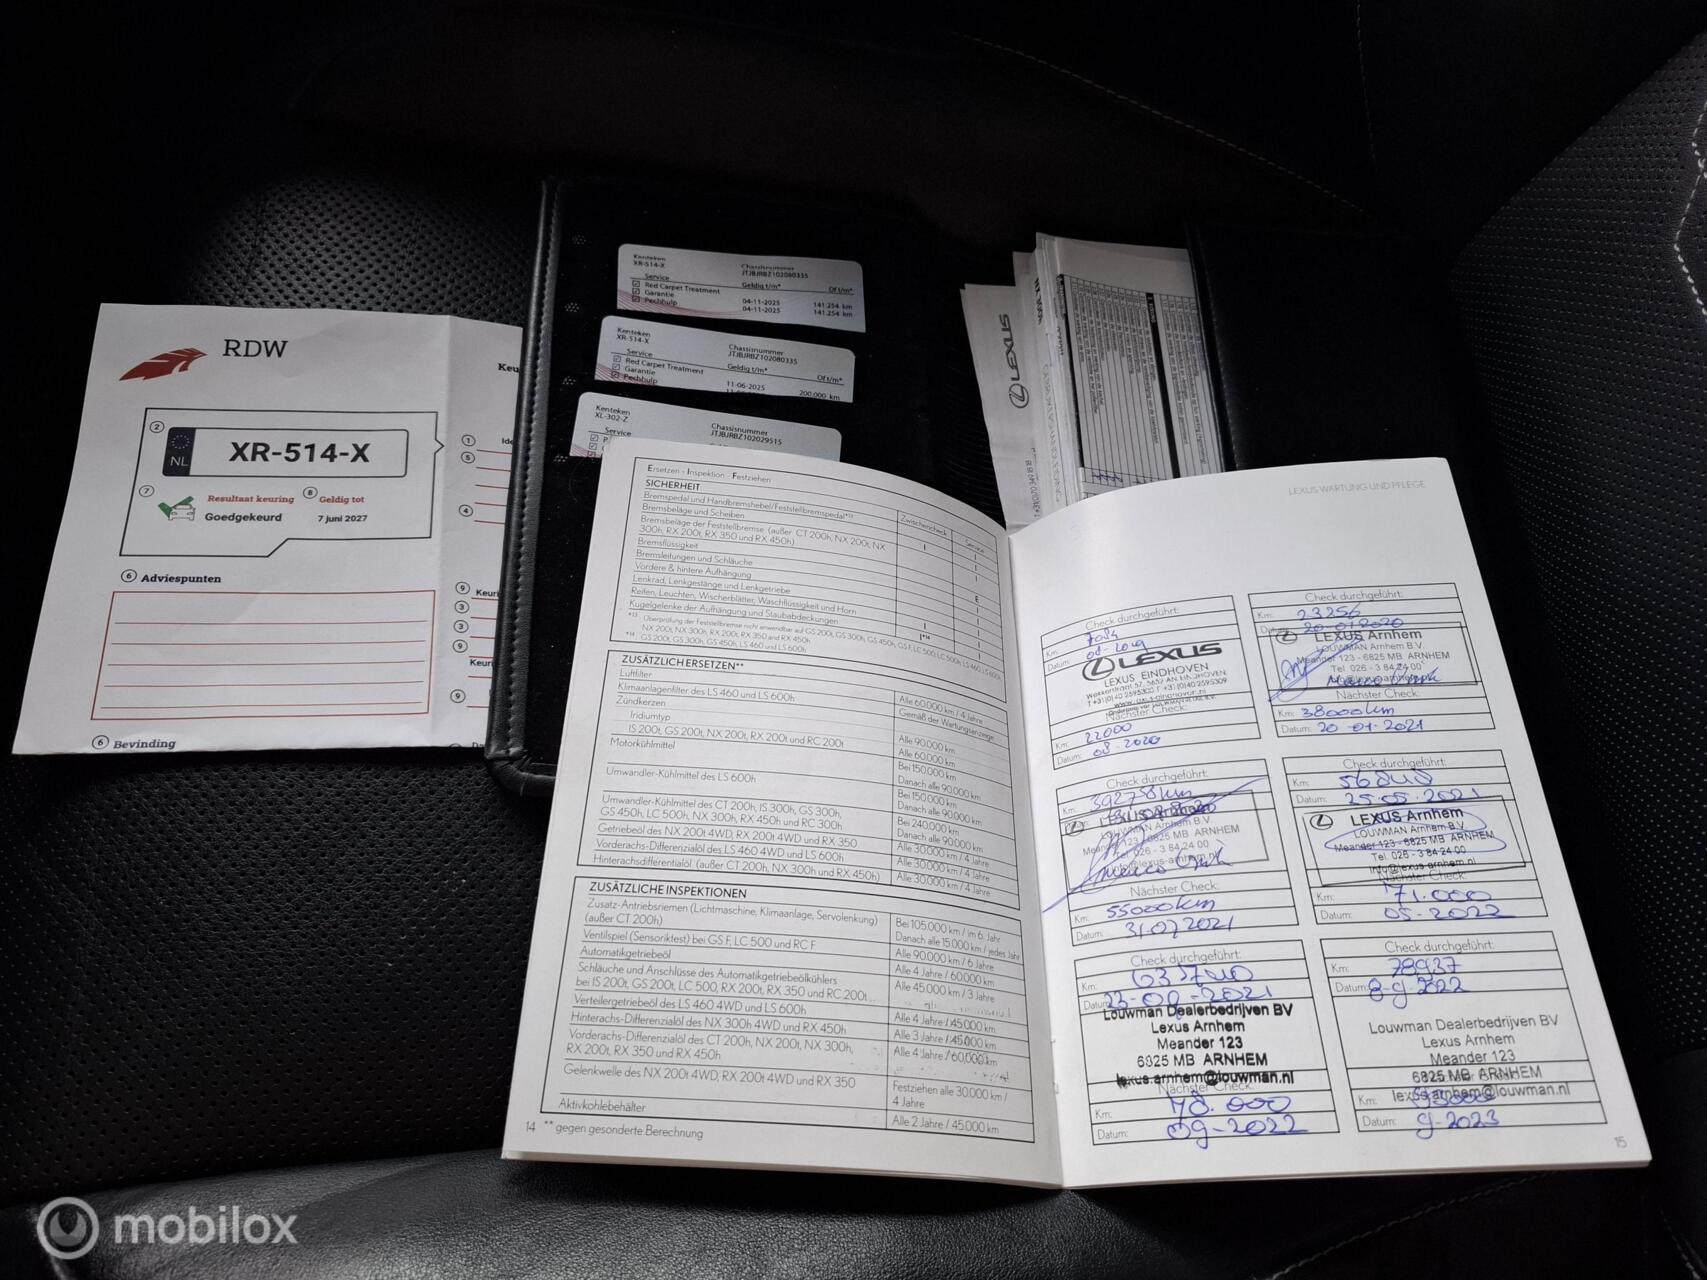 RDW
Keu
2
NL
XR-514-X
7
Resultaat keuring
Goedgekeurd
8
Geldig tot
7 juni 2027
1
Ide
5
4
6 Adviespunten
9 Keuri
3
3
9
Keuri
9
6 Bevinding
Kenteken
XR-514-X
Chassisnummer
JTJBJRBZ102080335
Service
Geldig t/m*
Of t/m*
Red Carpet Treatment
Garantie 04-11-2025 141.254 km
Pechhulp 04-11-2025 141.254 km
Kenteken
XR-514-X
Chassisnummer
JTJBJRBZ102080335
Service
Geldig t/m*
Of t/m*
Red Carpet Treatment
Garantie 11-06-2025 200.000 km
Pechhulp
Kenteken
XL-302-Z
Chassisnummer
JTJBJRBZ102029515
Service
LEXUS
Ersetzen - Inspektion - Festziehen
SICHERHEIT
Zwischencheck
Service
Bremspedal und Handbremshebel/Feststellbremspedal*13
Bremsbeläge und Scheiben
Bremsbeläge der Feststellbremse (außer CT 200h, NX 200t, NX
300h, RX 200t, RX 350 und RX 450h)
Bremsflüssigkeit
Bremsleitungen und Schläuche
Vordere & hintere Aufhängung
Lenkrad, Lenkgestänge und Lenkgetriebe
Reifen, Leuchten, Wischerblätter, Waschflüssigkeit und Horn
Kugelgelenke der Aufhängung und Staubabdeckungen
*13 Überprüfung der Feststellbremse nicht anwendbar auf GS 200t, GS 300h, GS 450h, GS F, LC 500, LC 500h, LS 460, LS 600h,
NX 200t, NX 300h, RX 200t, RX 350 und RX 450h
*14 GS 200t, GS 300h, GS 450h, LS 460 und LS 600h
ZUSÄTZLICH ERSETZEN**
Luftfilter Alle 60.000 km / 4 Jahre
Klimaanlagenfilter des LS 460 und LS 600h Gemäß der Wartungsanzeige
Zündkerzen
Iridiumtyp Alle 90.000 km
IS 200t, GS 200t, NX 200t, RX 200t und RC 200t Alle 60.000 km
Motorkühlmittel Bei 150.000 km
Danach alle 90.000 km
Umwandler-Kühlmittel des LS 600h Bei 150.000 km
Danach alle 90.000 km
Umwandler-Kühlmittel des CT 200h, IS 300h, GS 300h,
GS 450h, LC 500h, NX 300h, RX 450h und RC 300h Bei 240.000 km
Danach alle 90.000 km
Getriebeöl des NX 200t 4WD, RX 200t 4WD und RX 350 Alle 30.000 km / 4 Jahre
Vorderachs-Differenzialöl des LS 460 4WD und LS 600h Alle 30.000 km / 4 Jahre
Hinterachsdifferentialöl (außer CT 200h, NX 300h und RX 450h) Alle 30.000 km / 4 Jahre
ZUSÄTZLICHE INSPEKTIONEN
Zusatz-Antriebsriemen (Lichtmaschine, Klimaanlage, Servolenkung)
(außer CT 200h) Bei 105.000 km / im 6. Jahr
Danach alle 15.000 km / jedes Jahr
Ventilspiel (Sensoriktest) bei GS F, LC 500 und RC F Alle 90.000 km / 6 Jahre
Automatikgetriebeöl Alle 4 Jahre / 60.000 km
Schläuche und Anschlüsse des Automatikgetriebeölkühlers
bei IS 200t, GS 200t, LC 500, RX 200t, RX 350 und RC 200t Alle 45.000 km / 3 Jahre
Verteilergetriebeöl des LS 460 4WD und LS 600h Alle 4 Jahre / 45.000 km
Hinterachs-Differenzialöl des NX 300h 4WD und RX 450h Alle 3 Jahre / 45.000 km
Vorderachs-Differenzialöl des CT 200h, NX 200t, NX 300h,
RX 200t, RX 350 und RX 450h Alle 4 Jahre / 60.000 km
Gelenkwelle des NX 200t 4WD, RX 200t 4WD und RX 350 Festziehen alle 30.000 km /
4 Jahre
Aktivkohlebehälter Alle 2 Jahre / 45.000 km
14 ** gegen gesonderte Berechnung
LEXUS WARTUNG UND PFLEGE
Check durchgeführt:
Km: 7084
Datum: 08-2019
LEXUS
LEXUS EINDHOVEN
Nächster Check:
Km: 22000
Datum: 08-2020
Check durchgeführt:
Km: 23256
Datum: 20-01-2020
LEXUS Arnhem
LOUWMAN Arnhem B.V.
Meander 123 - 6825 MB ARNHEM
Tel. 026 - 3 84 24 00
info@lexus-arnhem.nl
Nächster Check:
Km: 38000km
Datum: 20-01-2021
Check durchgeführt:
Km: 39278km
LEXUS Arnhem
LOUWMAN Arnhem B.V.
Meander 123 - 6825 MB ARNHEM
Tel. 026 - 3 84 24 00
info@lexus-arnhem.nl
Nächster Check:
Km: 55000km
Datum: 31/07/2021
Check durchgeführt:
Km: 56848
Datum: 25-05-2021
LEXUS Arnhem
LOUWMAN Arnhem B.V.
Meander 123 - 6825 MB ARNHEM
Tel. 026 - 3 84 24 00
info@lexus-arnhem.nl
Nächster Check:
Km: 71.000
Datum: 05-2022
Check durchgeführt:
Km:
Datum: 23-09-2021
Louwman Dealerbedrijven BV
Lexus Arnhem
Meander 123
6825 MB ARNHEM
lexus.arnhem@louwman.nl
Nächster Check:
Km: 78.000
Datum: 09-2022
Check durchgeführt:
Km: 78937
Datum: 8-9-2022
Louwman Dealerbedrijven BV
Lexus Arnhem
Meander 123
6825 MB ARNHEM
lexus.arnhem@louwman.nl
Km: 93000
Datum: 9-2023
15
mobilox